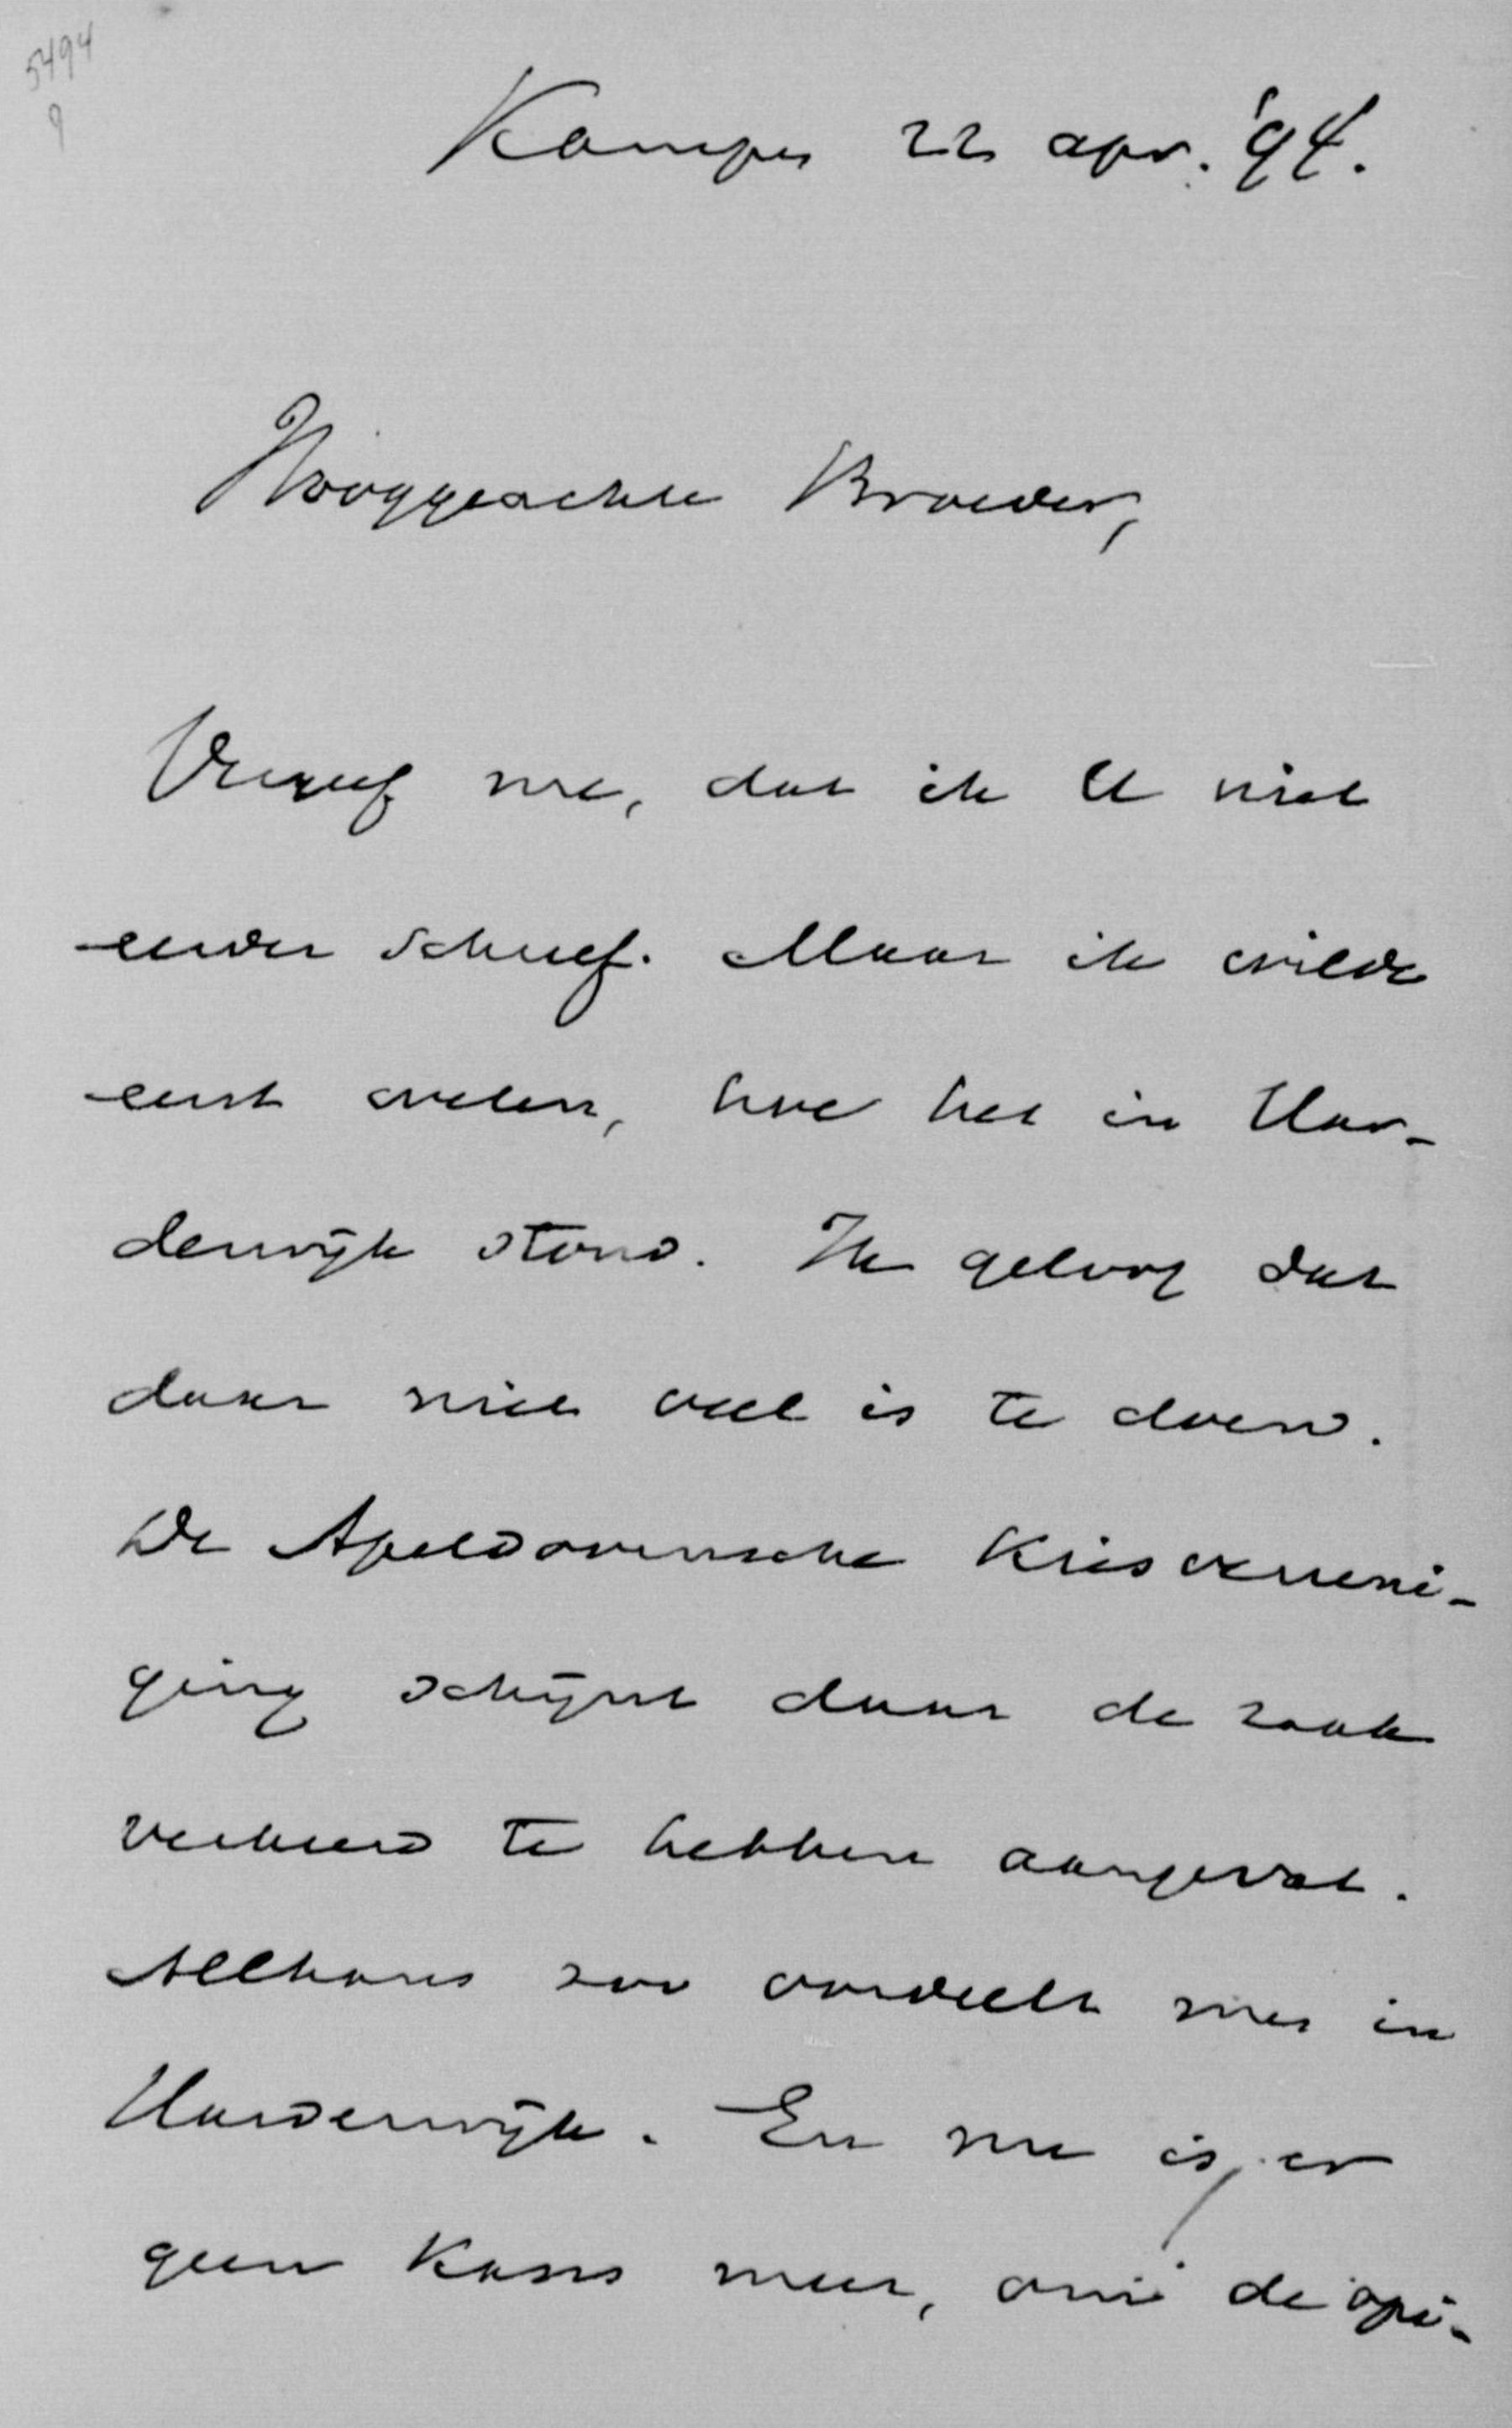 5494
9
Kampen 22 apr. '94.
Hooggeachte Broeder,
Vergeef me, dat ik U niet
eerder schreef. Maar ik wilde
eerst weten, hoe het in Har-
derwijk stond. Ik geloof dat
daar niet veel is te doen.
De Apeldoornsche Kiesvereeni-
ging schijnt daar de zaak
verkeerd te hebben aangevat.
Althans zoo oordeelt men in
Harderwijk. En nu is er
geen kans meer, om de opi-